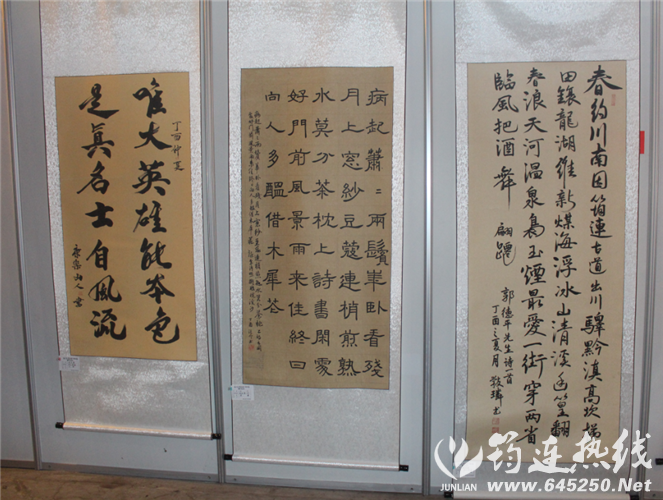 春約川南因筠連古道出川驛黔滇高坎梯
田鑲龍湖維新煤海浮冰山清溪逐篁翻
春浪天河温泉為玉煙最愛一街穿兩省
臨風把酒舞翩躚
郭德平先生诗一首
丁酉之夏月
病起蕭〻兩鬢華卧看殘
月上窓紗豆蔻連梢煎熟
水莫分茶枕上詩書閑處
好門前風景雨来佳終日
向人多醖借木犀花
丁酉仲夏
唯大英雄能本色
是真名士自風流
筠连热线
JUNLIAN
www.645250.Net